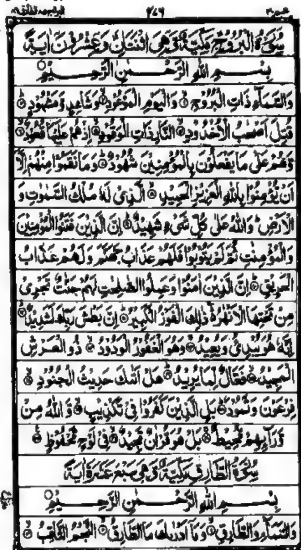 سُوْرَةُ الْبُرُوْجِ مَكِّيَّةٌ وَّهِيَ اثْنَتَانِ وَعِشْرُوْنَ اٰيَةً
بِسْمِ اللهِ الرَّحْمٰنِ الرَّحِيْمِ
وَالسَّمَآءِ ذَاتِ الْبُرُوْجِ ۝ وَالْيَوْمِ الْمَوْعُوْدِ ۝ وَشَاهِدٍ وَّمَشْهُوْدٍ ۝
قُتِلَ اَصْحٰبُ الْاُخْدُوْدِ ۝ النَّارِ ذَاتِ الْوَقُوْدِ ۝ اِذْ هُمْ عَلَيْهَا قُعُوْدٌ ۝
وَّهُمْ عَلٰى مَا يَفْعَلُوْنَ بِالْمُؤْمِنِيْنَ شُهُوْدٌ ۝ وَمَا نَقَمُوْا مِنْهُمْ اِلَّآ
اَنْ يُّؤْمِنُوْا بِاللهِ الْعَزِيْزِ الْحَمِيْدِ ۝ الَّذِيْ لَهٗ مُلْكُ السَّمٰوٰتِ وَ
الْاَرْضِ ۚ وَاللهُ عَلٰى كُلِّ شَيْءٍ شَهِيْدٌ ۝ اِنَّ الَّذِيْنَ فَتَنُوا الْمُؤْمِنِيْنَ
وَالْمُؤْمِنٰتِ ثُمَّ لَمْ يَتُوْبُوْا فَلَهُمْ عَذَابُ جَهَنَّمَ وَلَهُمْ عَذَابُ
الْحَرِيْقِ ۝ اِنَّ الَّذِيْنَ اٰمَنُوْا وَعَمِلُوا الصّٰلِحٰتِ لَهُمْ جَنّٰتٌ تَجْرِيْ
مِنْ تَحْتِهَا الْاَنْهٰرُ ۚ ذٰلِكَ الْفَوْزُ الْكَبِيْرُ ۝ اِنَّ بَطْشَ رَبِّكَ لَشَدِيْدٌ ۝
اِنَّهٗ هُوَ يُبْدِئُ وَيُعِيْدُ ۝ وَهُوَ الْغَفُوْرُ الْوَدُوْدُ ۝ ذُو الْعَرْشِ
الْمَجِيْدُ ۝ فَعَّالٌ لِّمَا يُرِيْدُ ۝ هَلْ اَتٰىكَ حَدِيْثُ الْجُنُوْدِ ۝
فِرْعَوْنَ وَثَمُوْدَ ۝ بَلِ الَّذِيْنَ كَفَرُوْا فِيْ تَكْذِيْبٍ ۝ وَّاللهُ مِنْ
وَّرَآئِهِمْ مُّحِيْطٌ ۝ بَلْ هُوَ قُرْاٰنٌ مَّجِيْدٌ ۝ فِيْ لَوْحٍ مَّحْفُوْظٍ ۝
سُوْرَةُ الطَّارِقِ مَكِّيَّةٌ وَّهِيَ سَبْعَ عَشْرَةَ اٰيَةً
بِسْمِ اللهِ الرَّحْمٰنِ الرَّحِيْمِ
وَالسَّمَآءِ وَالطَّارِقِ ۝ وَمَآ اَدْرٰىكَ مَا الطَّارِقُ ۝ النَّجْمُ الثَّاقِبُ ۝